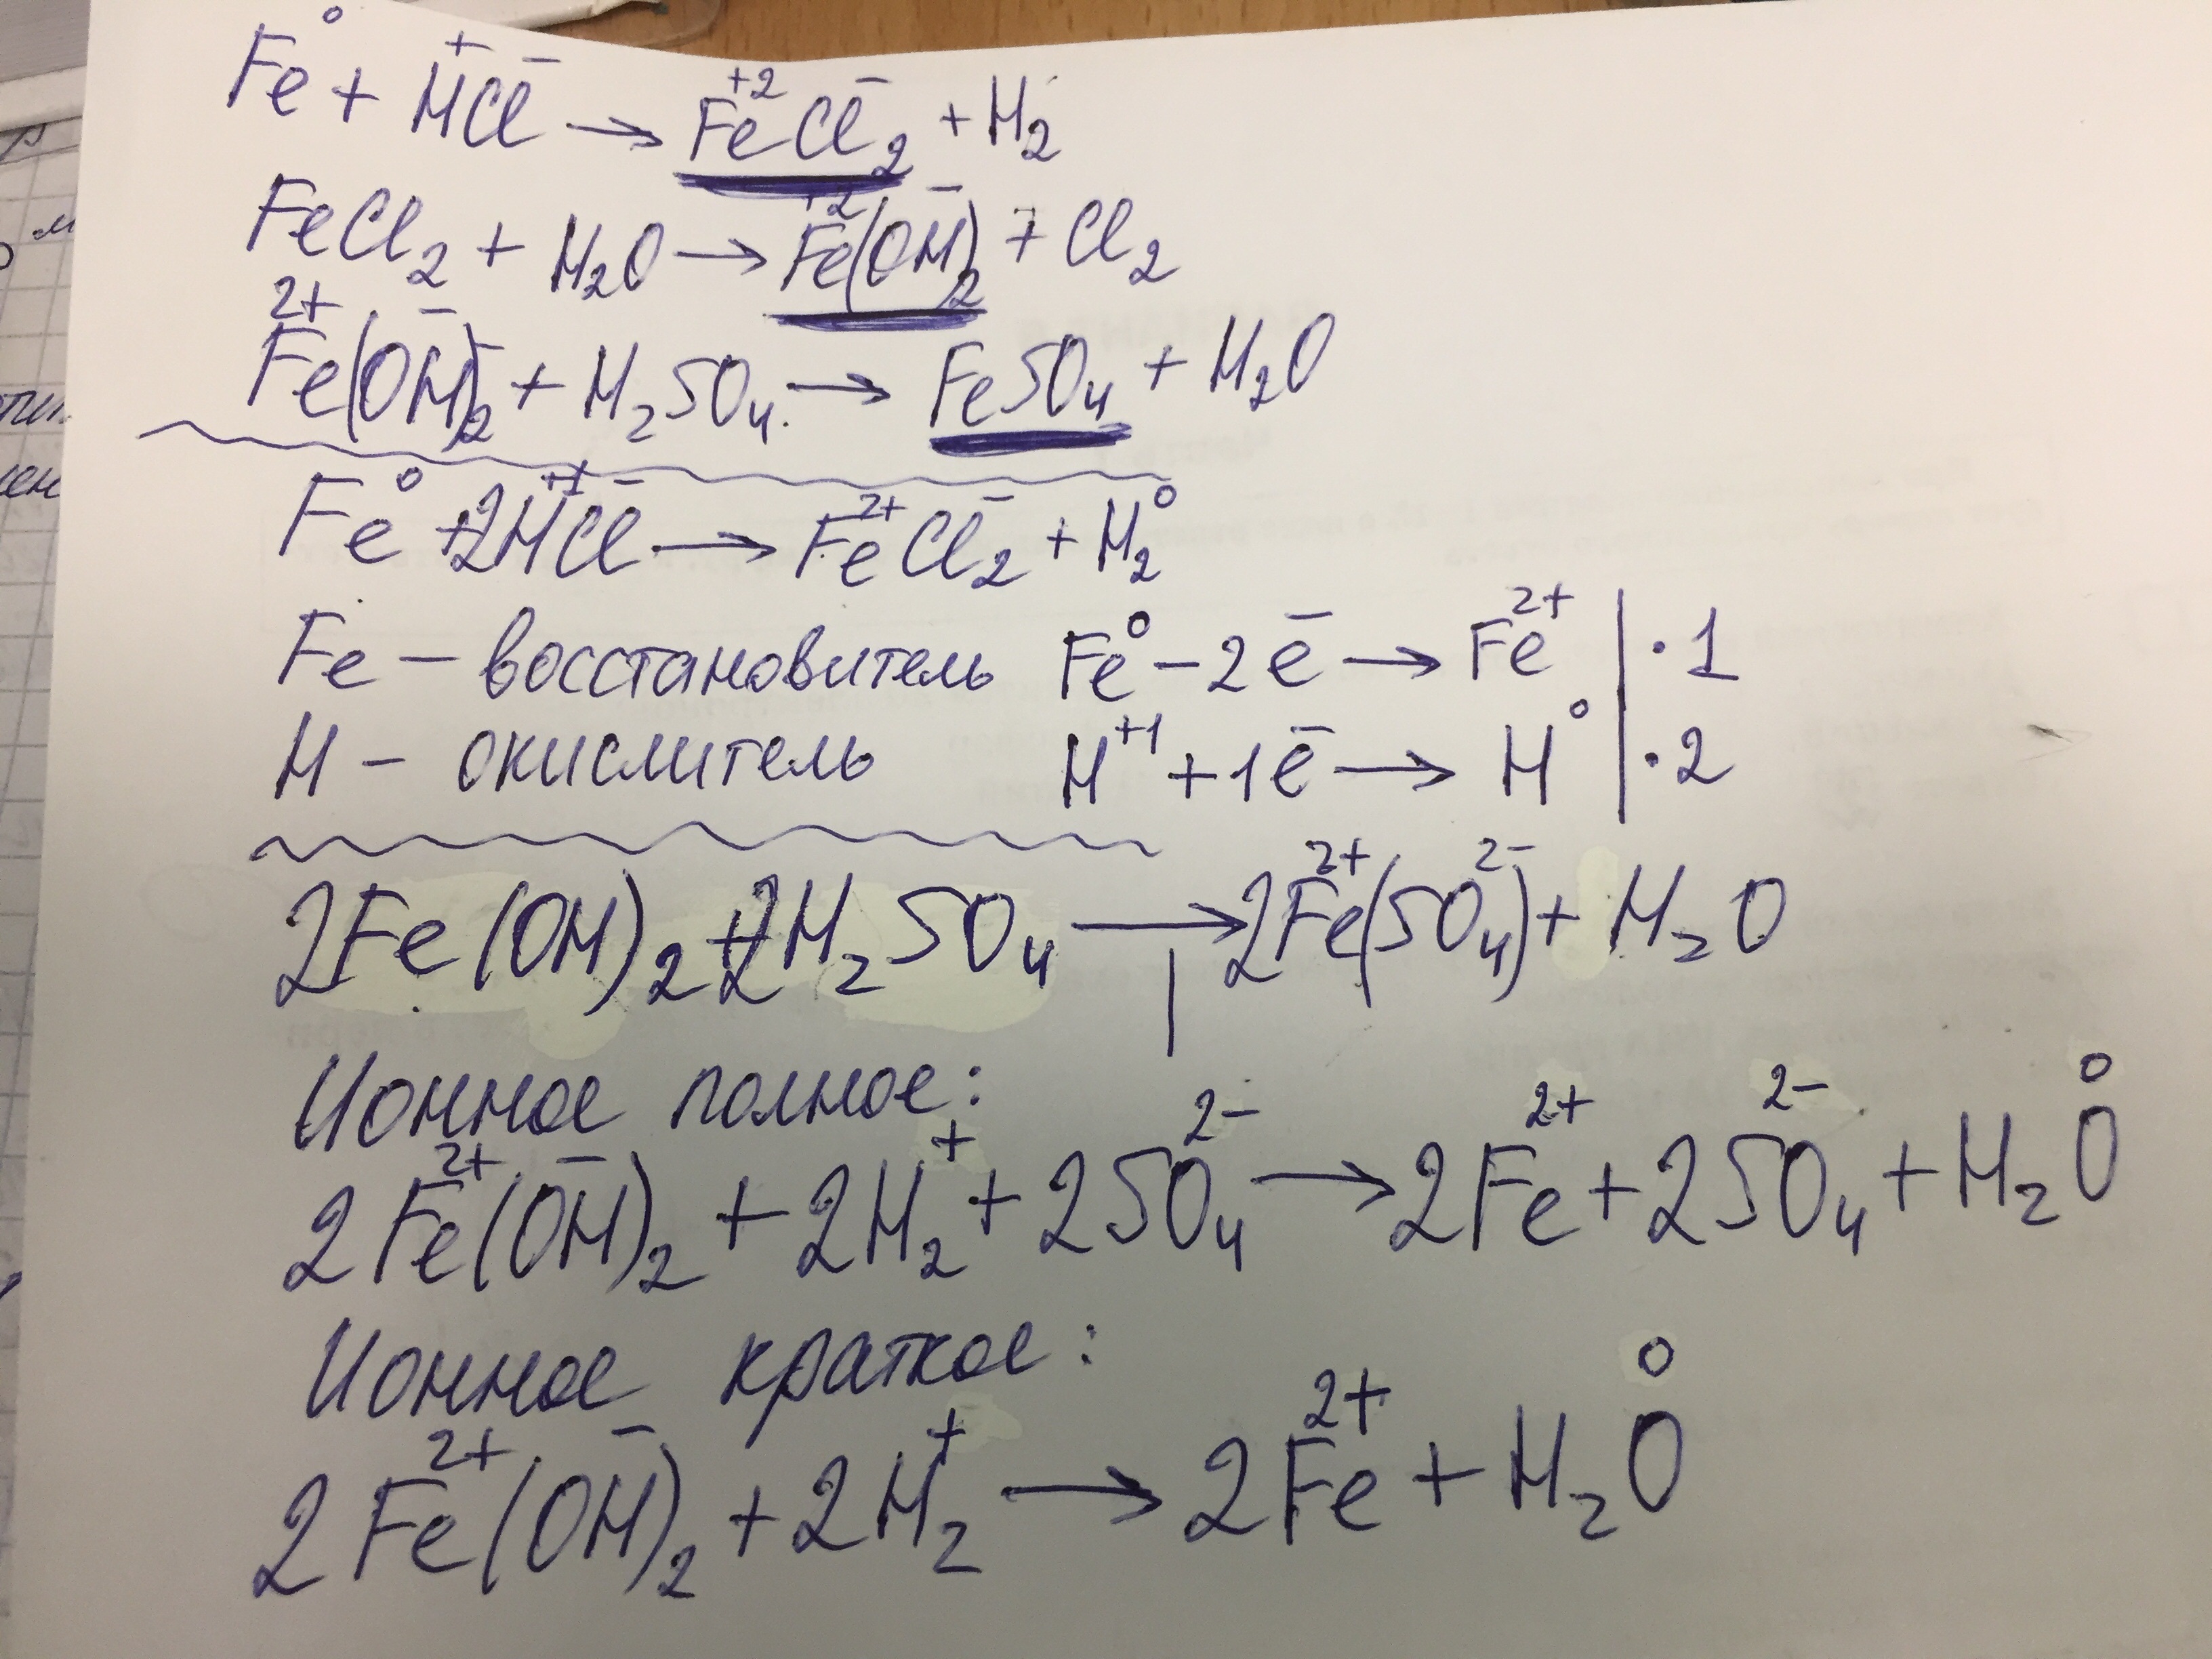 Fe⁰ + H⁺Cl⁻ → Fe⁺²Cl⁻₂ + H₂
FeCl₂ + H₂O → Fe⁺²(OH)⁻₂ + Cl₂
Fe²⁺(OH)⁻₂ + H₂SO₄ → FeSO₄ + H₂O
Fe⁰ + 2H⁺¹Cl⁻ → Fe²⁺Cl⁻₂ + H₂⁰
Fe – восстановитель Fe⁰ – 2e⁻ → Fe²⁺ | · 1
H – окислитель H⁺¹ + 1e⁻ → H⁰ | · 2
2Fe(OH)₂ + 2H₂SO₄ → 2Fe²⁺(SO₄²⁻) + H₂O
Ионное полное:
2Fe²⁺(OH)⁻₂ + 2H₂⁺ + 2SO₄²⁻ → 2Fe²⁺ + 2SO₄²⁻ + H₂O⁰
Ионное краткое:
2Fe²⁺(OH)⁻₂ + 2H₂⁺ → 2Fe²⁺ + H₂O⁰